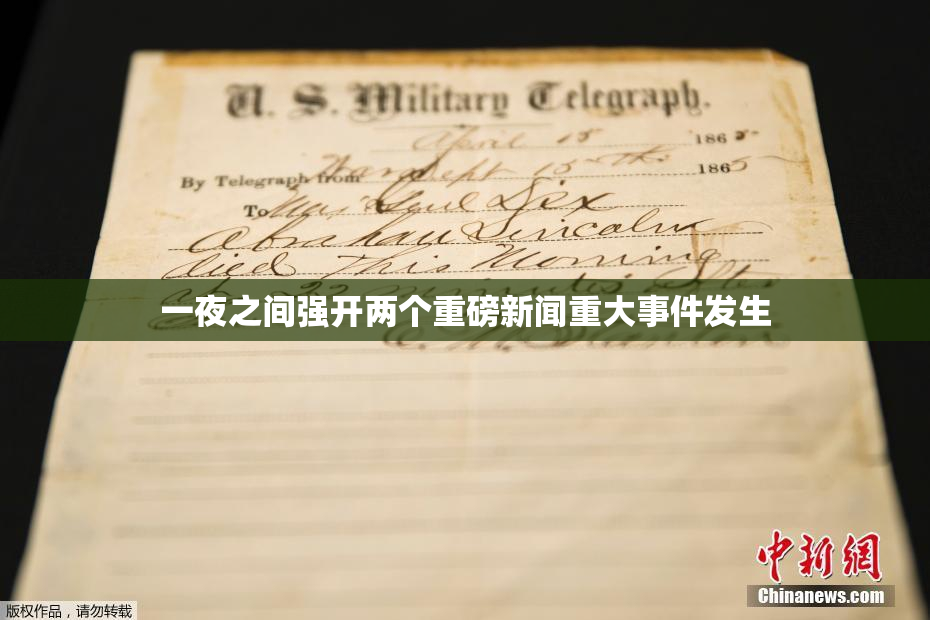 U. S. Military Telegraph.
April 15 1865
By Telegraph from War Dept 15th 1865
To Maj Genl Dix
Abraham Lincoln
died This Morning
at 22 minutes after
一夜之间强开两个重磅新闻重大事件发生
E. M. Stanton
中新網
Chinanews.com
版权作品,请勿转载